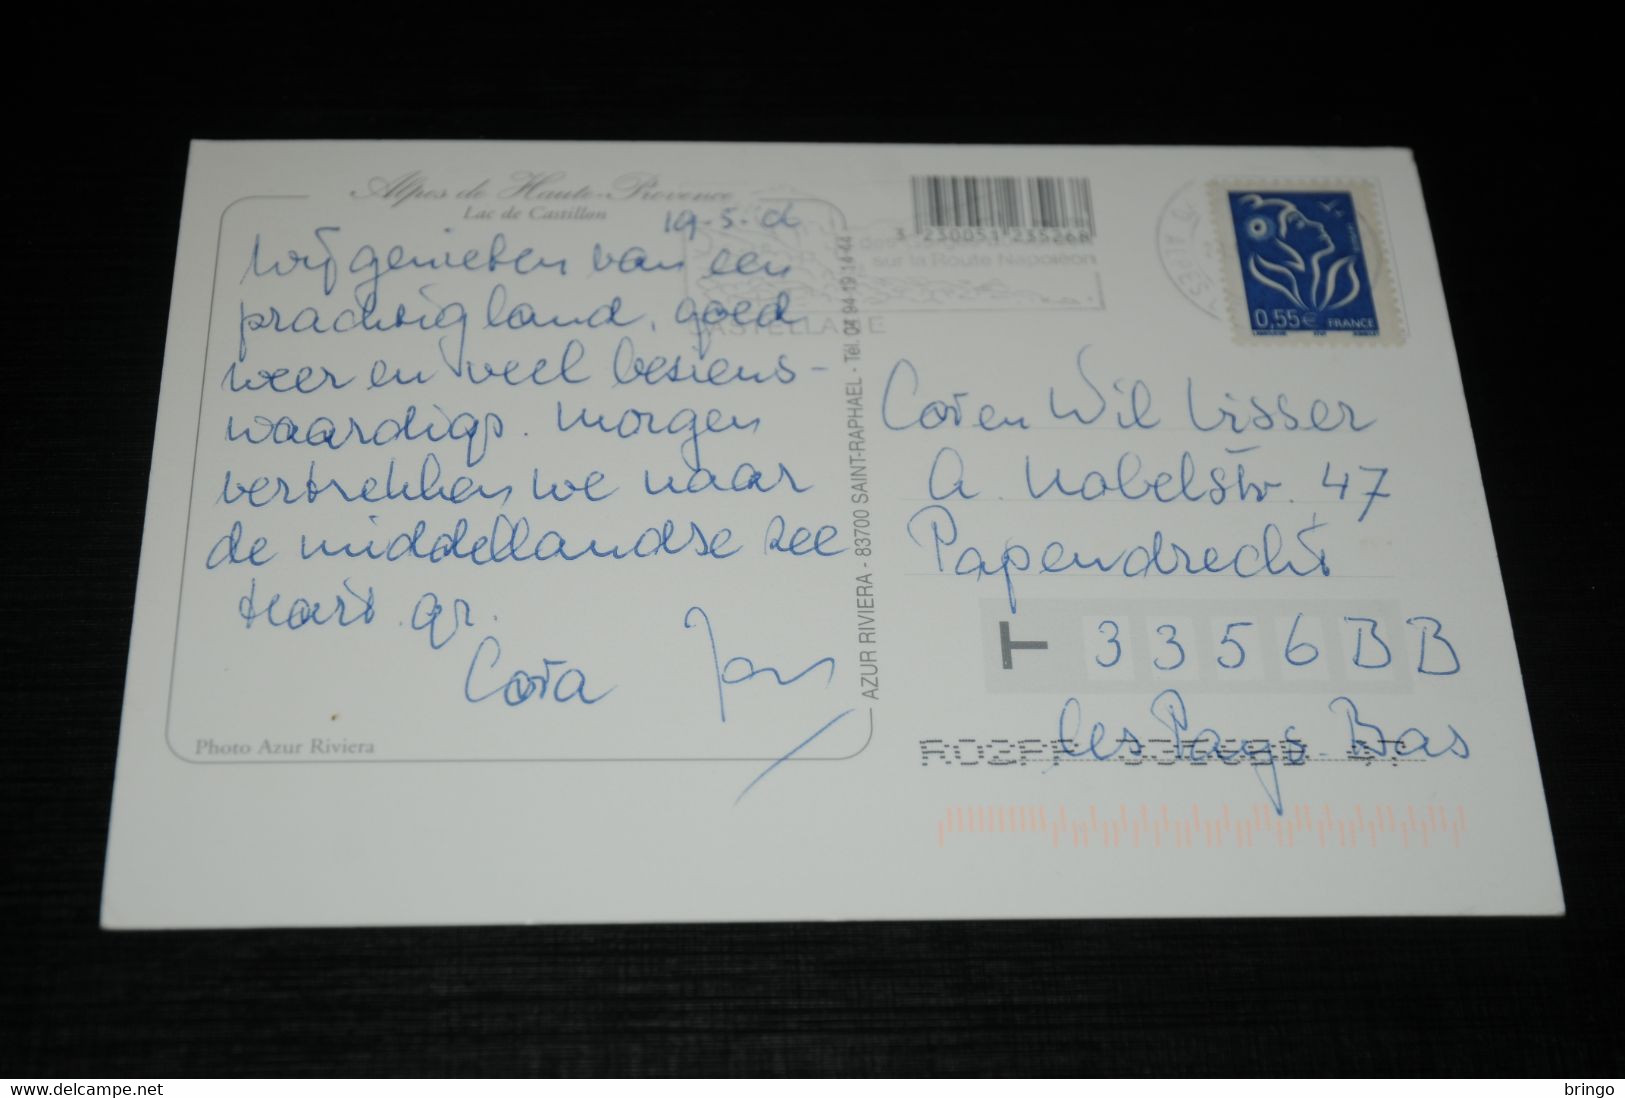 Alpes de Haute-Provence
Lac de Castillon
19-5-06
Wij genieten van een
prachtig land, goed
weer en veel beziens-
waardigs. Morgen
vertrekken we naar
de middellandse zee
Hart. gr.
Cora
Photo Azur Riviera
AZUR RIVIERA - 83700 SAINT-RAPHAEL - Tél. 04 94 19 14 44
3 230051 235268
sur la Route Napoléon
CASTELLANE
0,55€ FRANCE
Cor en Wil Visser
A. Nobelstr. 47
Papendrecht
T 3356BB
les Pays-Bas
www.delcampe.net
bringo